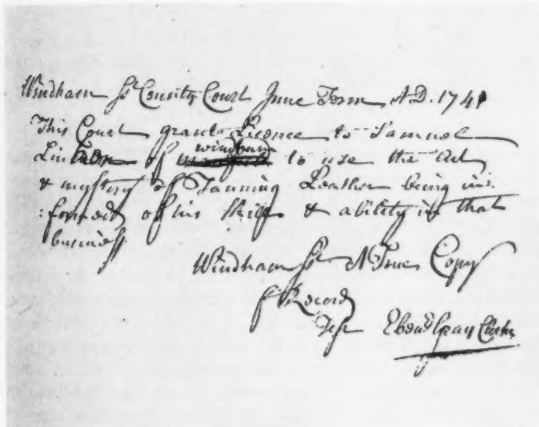 Windham Ss County Court June Term A.D. 1741
This Court grants Licence to Samuel
Lincoln of windham to use the Art
& mystery of Tanning Leather being in
:formed of his skill & ability in that
business
Windham Ss A True Copy
of Record
Test Ebenr Gray Clerk